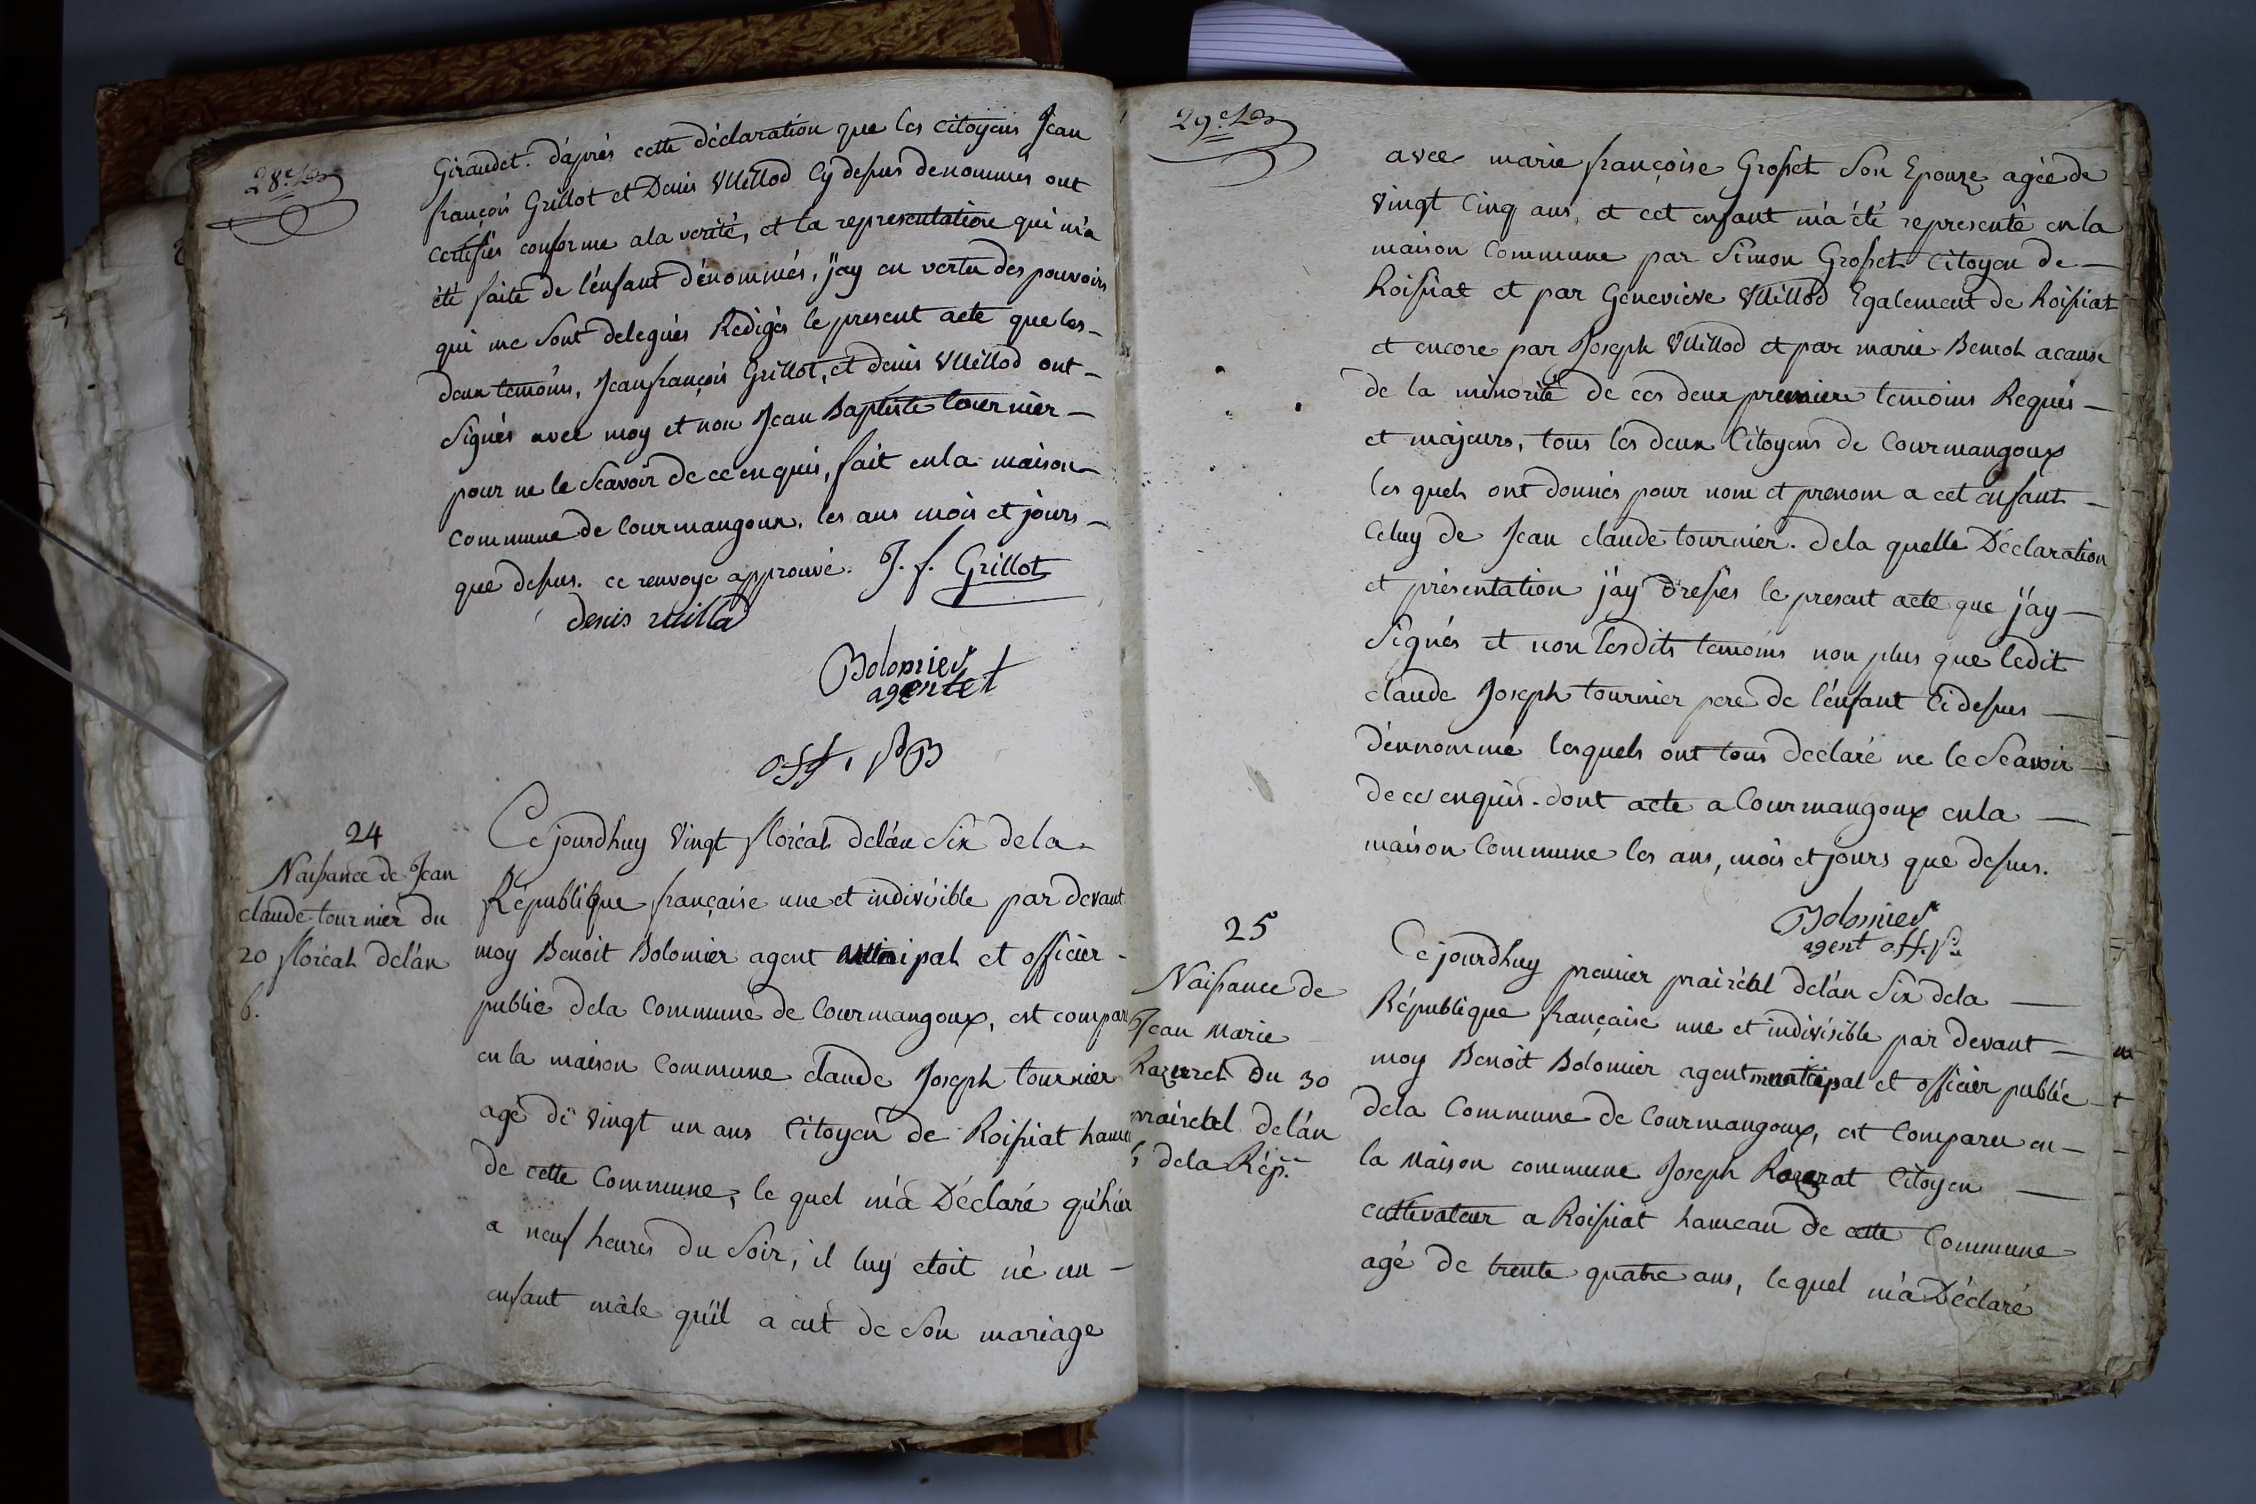 28e
Giraudet. d'après cette déclaration que les citoyens Jean
françois Grillot et Denis Vuillod Cy dessus denommés ont
certifiés conforme a la verité, et la representation qui m'a
été faite de l'enfant dénommés, j'ay en vertu des pouvoirs
qui me sont delegués Redigés le present acte que les
deux temoins, Jean françois Grillot, et denis Vuillod ont
Signés avec moy et non Jean Baptiste tournier
pour ne le Scavoir de ce enquis, fait en la maison
commune de Courmangoux. les ans mois et jours
que dessus. ce renvoye approuvé. J. f. Grillot
denis vuillod
Bolomier
agent
24
Naissance de Jean
claude tournier du
20 floréal de l'an
6.
Ce jourdhuy Vingt floréal de l'an Six de la
République française une et indivisible par devant
moy Benoit Bolomier agent municipal et officier
public de la Commune de Courmangoux, est comparu
en la maison Commune claude Joseph tournier
agé de vingt un ans Citoyen de Roissiat hameau
de cette Commune, le quel m'a Déclaré qu'hier
a neuf heures du Soir, il luy etoit né un
enfant mâle qu'il a eut de Son mariage
29e
avec marie françoise Grosset Son Epouze agée de
Vingt Cinq ans, et cet enfant m'a été representé en la
maison Commune par Simon Grosset Citoyen de
Roissiat et par Genevieve Vuillod Egalement de Roissiat
et encore par Joseph Vuillod et par marie Benoit a cause
de la minorité de ces deux premiere temoins Requis
et majeurs, tous les deux Citoyens de Courmangoux
les quels ont donnés pour nom et prenom a cet enfant
Celuy de Jean claude tournier. de la quelle Déclaration
et présentation j'ay Dressés le present acte que j'ay
Signés et non lesdits temoins non plus que ledit
claude Joseph tournier pere de l'enfant Ci dessus
dénnommé lesquels ont tous declaré ne le Scavoir
de ce enquis. dont acte a Courmangoux en la
maison Commune les ans, mois et jours que dessus.
Bolomier
agent off. p.
25
Naissance de
Jean Marie
du 30
prairial de l'an
6 de la Rép.
Ce jourdhuy premier prairial de l'an Six de la
République française une et indivisible par devant
moy Benoit Bolomier agent municipal et officier public
de la Commune de Courmangoux, est Comparu en
la Maison commune Joseph Citoyen
cultivateur a Roissiat hameau de cette Commune
agé de trente quatre ans, le quel m'a Déclaré